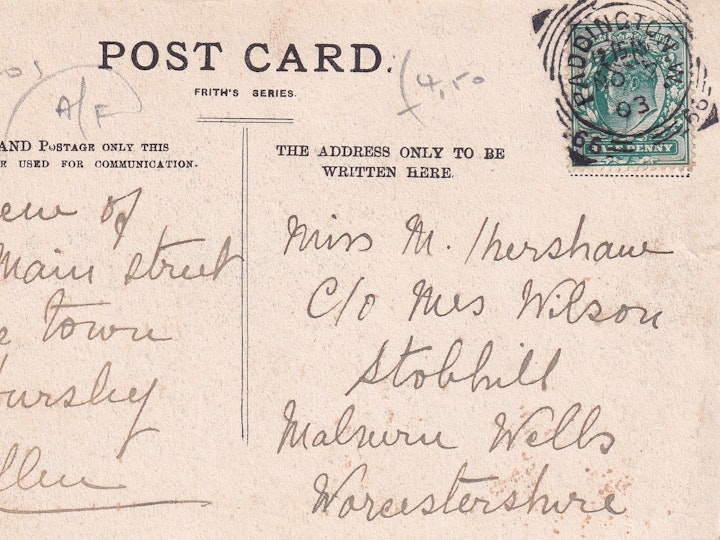 POST CARD.
FRITH'S SERIES.
A/F
4,50
AND POSTAGE ONLY THIS
E USED FOR COMMUNICATION.
THE ADDRESS ONLY TO BE
WRITTEN HERE.
PADDINGTON. W.
03
PENNY
of
Main street
town
Miss M. Kershaw
C/o Mrs Wilson
Stobhill
Malvern Wells
Worcestershire